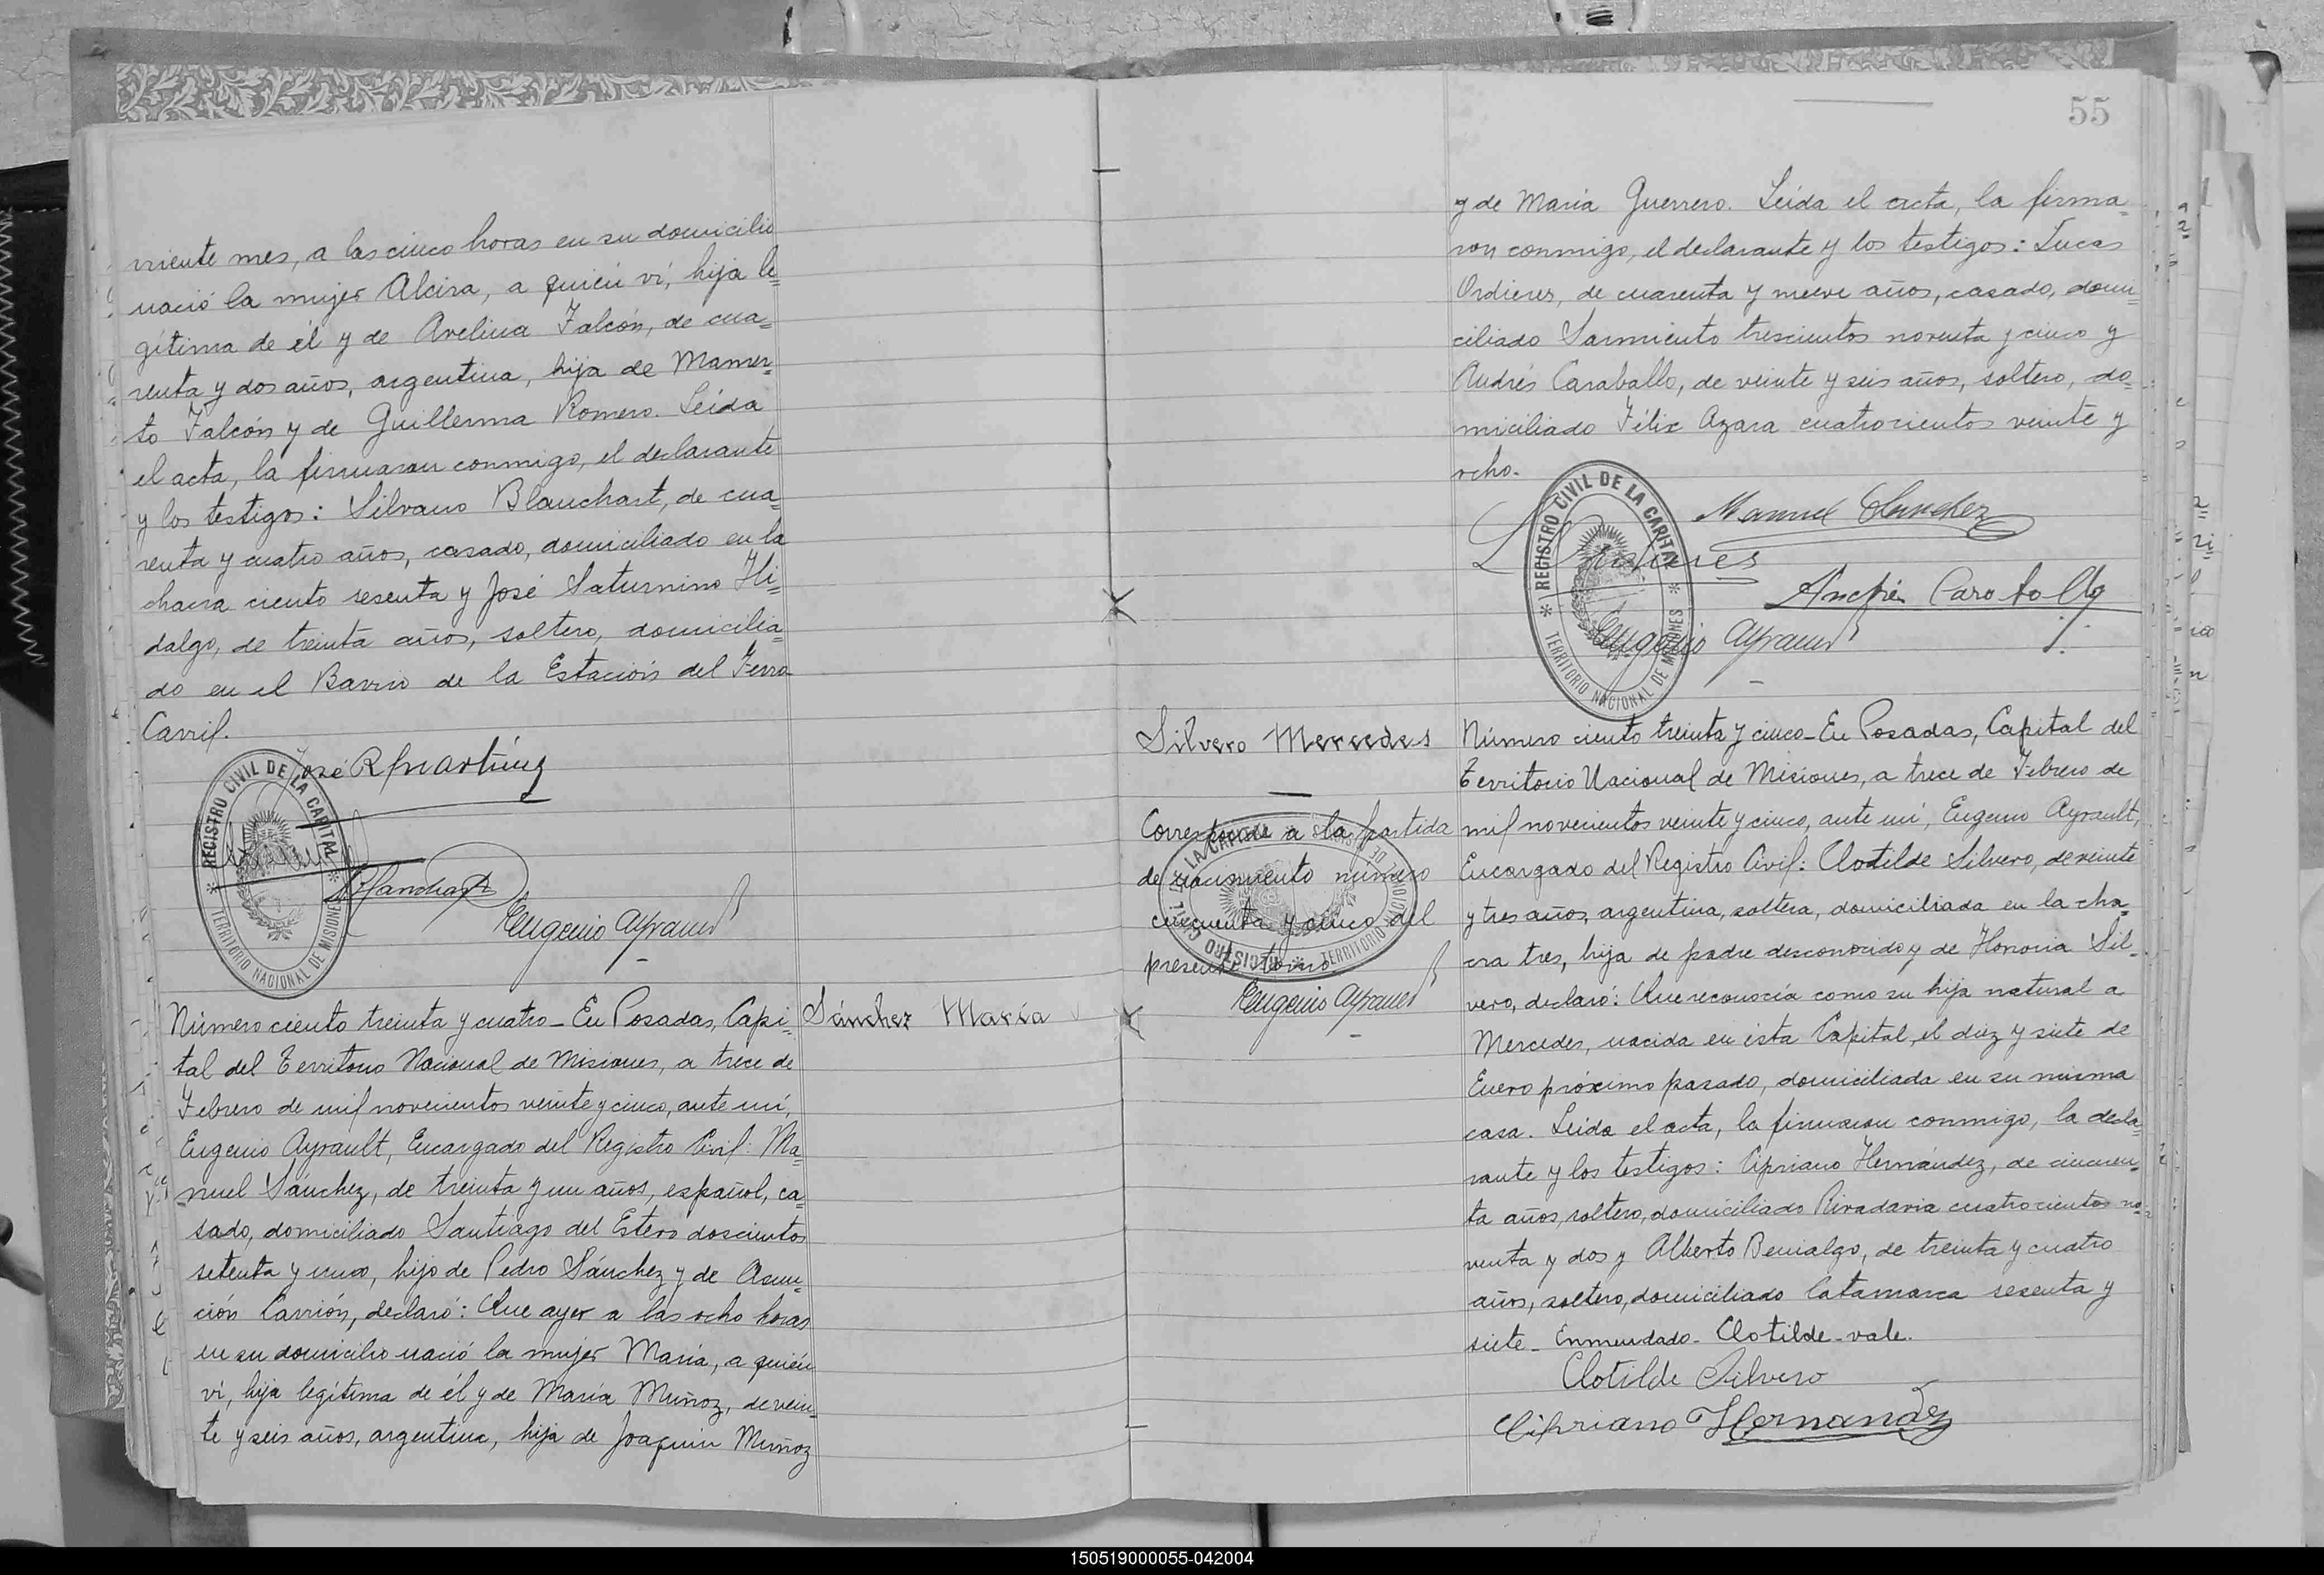 rriente mes, a las cinco horas en su domicilio
nació la mujer Alcira, a quién ví, hija le=
gítima de él y de Avelina Falcón, de cua=
renta y dos años, argentina, hija de Mamer=
to Falcón y de Guillerma Romero. Leída
el acta, la firmaron conmigo, el declarante
y los testigos: Silvano Blanchart, de cua=
renta y cuatro años, casado, domiciliado en la
chacra ciento sesenta y José Saturnino Hi=
dalgo, de treinta años, soltero, domicilia=
do en el Barrio de la Estación del Ferro
Carril.
José R Martínez
REGISTRO CIVIL DE LA CAPITAL
TERRITORIO NACIONAL DE MISIONES
SBlanchart
Eugenio Ayrault
Sánchez María
Número ciento treinta y cuatro - En Posadas, Capi=
tal del Territorio Nacional de Misiones, a trece de
Febrero de mil novecientos veinte y cinco, ante mí,
Eugenio Ayrault, Encargado del Registro Civil: Ma=
nuel Sánchez, de treinta y un años, español, ca=
sado, domiciliado Santiago del Estero doscientos
setenta y cinco, hijo de Pedro Sánchez y de Asun=
ción Carrión, declaró: Que ayer a las ocho horas
en su domicilio nació la mujer María, a quién
ví, hija legítima de él y de María Muñoz, de vein=
te y seis años, argentina, hija de Joaquín Muñoz
55
y de María Guerrero. Leída el acta, la firma=
ron conmigo, el declarante y los testigos: Lucas
Ordieres, de cuarenta y nueve años, casado, domi=
ciliado Sarmiento trescientos noventa y cinco y
Andrés Caraballo, de veinte y seis años, soltero, do=
miciliado Félix Azara cuatrocientos veinte y
ocho.
Manuel Sanchez
L Ordieres
REGISTRO CIVIL DE LA CAPITAL
TERRITORIO NACIONAL DE MISIONES
Andrés Caraballo
Eugenio Ayrault
Silvero Mercedes
Corresponde a la partida
de nacimiento número
cincuenta y cinco del
presente tomo
REGISTRO CIVIL DE LA CAPITAL
TERRITORIO NACIONAL DE
Eugenio Ayrault
Número ciento treinta y cinco - En Posadas, Capital del
Territorio Nacional de Misiones, a trece de Febrero de
mil novecientos veinte y cinco, ante mí, Eugenio Ayrault,
Encargado del Registro Civil: Clotilde Silvero, de veinte
y tres años, argentina, soltera, domiciliada en la cha=
cra tres, hija de padre desconocido y de Honoria Sil=
vero, declaró: Que reconocía como su hija natural a
Mercedes, nacida en ésta Capital, el diez y siete de
Enero próximo pasado, domiciliada en su misma
casa. Leída el acta, la firmaron conmigo, la decla=
rante y los testigos: Cipriano Hernández, de cincuen=
ta años, soltero, domiciliado Rivadavia cuatrocientos no=
venta y dos y Alberto Benialgo, de treinta y cuatro
años, soltero, domiciliado Catamarca sesenta y
siete - Enmendado - Clotilde - vale.
Clotilde Silvero
Cipriano Hernandez
150519000055-042004